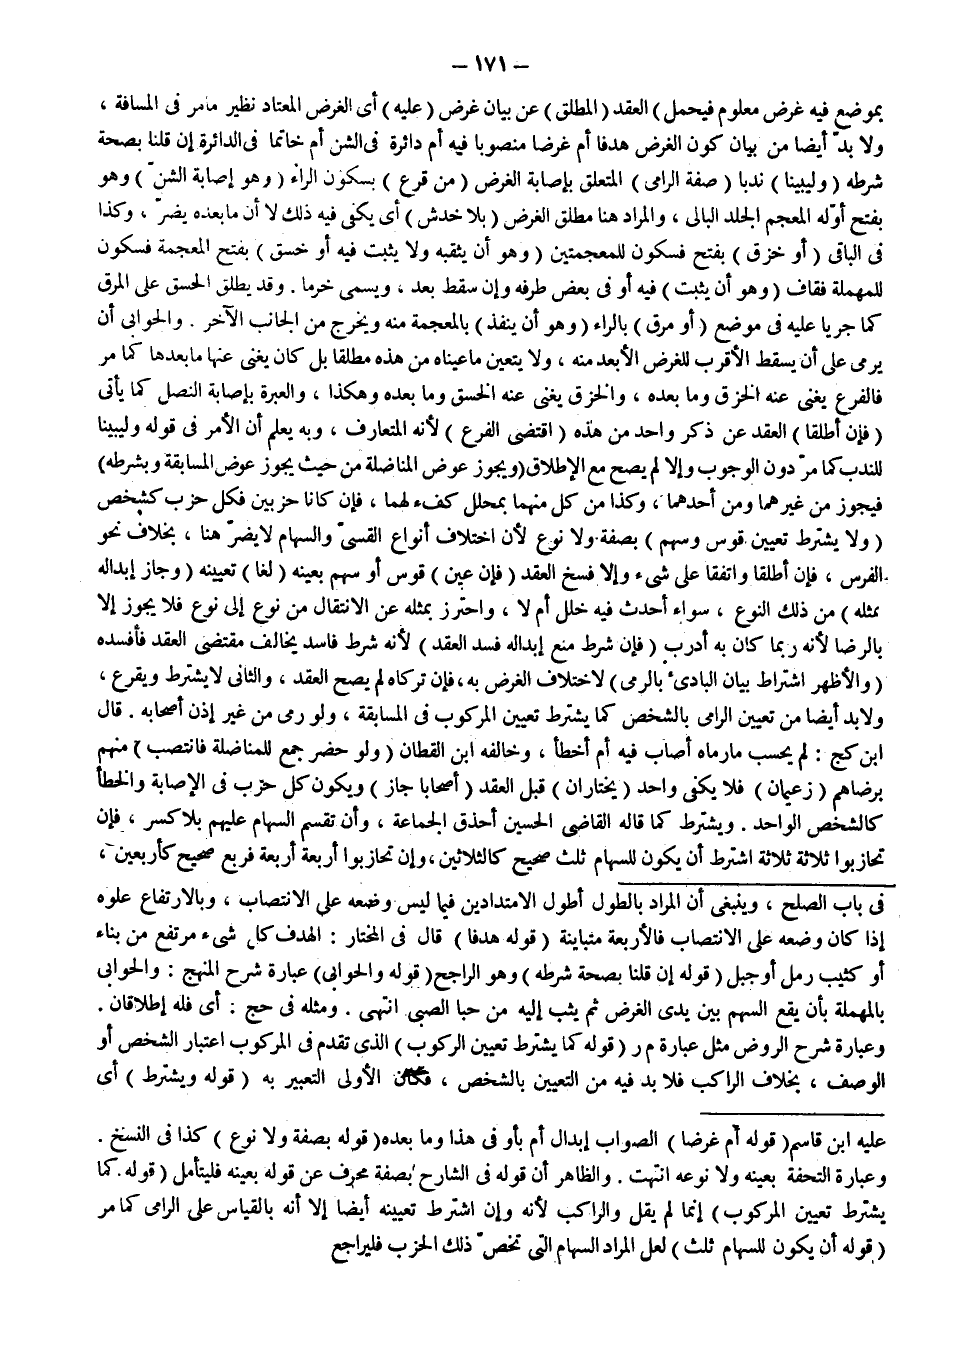 – ١٧١ –
بموضع فيه غرض معلوم فيحمل ) العقد ( المطلق ) عن بيان غرض ( عليه ) أى الغرض المعتاد نظير مامر فى المسافة ،
ولا بدّ أيضا من بيان كون الغرض هدفا أم غرضا منصوبا فيه أم دائرة فى الشن أم خاتما فى الدائرة إن قلنا بصحة
شرطه ( وليبينا ) ندبا ( صفة الرامى ) المتعلق بإصابة الغرض ( من قرع ) بسكون الراء ( وهو إصابة الشنّ ) وهو
بفتح أوّله المعجم الجلد البالى ، والمراد هنا مطلق الغرض ( بلا خدش ) أى يكفى فيه ذلك لا أن مابعده يضرّ ، وكذا
فى الباقى ( أو خزق ) بفتح فسكون للمعجمتين ( وهو أن يثقبه ولا يثبت فيه أو خسق ) بفتح المعجمة فسكون
للمهملة فقاف ( وهو أن يثبت ) فيه أو فى بعض طرفه وإن سقط بعد ، ويسمى خرما . وقد يطلق الخسق على المرق
كما جريا عليه فى موضع ( أو مرق ) بالراء ( وهو أن ينفذ ) بالمعجمة منه ويخرج من الجانب الآخر . والحوابى أن
يرمى على أن يسقط الأقرب للغرض الأبعد منه ، ولا يتعين ماعيناه من هذه مطلقا بل كان يغنى عنها مابعدها كما مر
فالقرع يغنى عنه الخزق وما بعده ، والخزق يغنى عنه الخسق وما بعده وهكذا ، والعبرة بإصابة النصل كما يأتى
( فإن أطلقا ) العقد عن ذكر واحد من هذه ( اقتضى القرع ) لأنه المتعارف ، وبه يعلم أن الأمر فى قوله وليبينا
للندب كما مرّ دون الوجوب وإلا لم يصح مع الإطلاق ( ويجوز عوض المناضلة من حيث يجوز عوض المسابقة وبشرطه )
فيجوز من غيرهما ومن أحدهما ، وكذا من كل منهما بمحلل كفء لهما ، فإن كانا حزبين فكل حزب كشخص
( ولا يشترط تعيين قوس وسهم ) بصفة ولا نوع لأن اختلاف أنواع القسىّ والسهام لايضرّ هنا ، بخلاف نحو
الفرس ، فإن أطلقا واتفقا على شىء وإلا فسخ العقد ( فإن عين ) قوس أو سهم بعينه ( لغا ) تعيينه ( وجاز إبداله
بمثله ) من ذلك النوع ، سواء أحدث فيه خلل أم لا ، واحترز بمثله عن الانتقال من نوع إلى نوع فلا يجوز إلا
بالرضا لأنه ربما كان به أدرب ( فإن شرط منع إبداله فسد العقد ) لأنه شرط فاسد يخالف مقتضى العقد فأفسده
( والأظهر اشتراط بيان البادئ بالرمى ) لاختلاف الغرض به ، فإن تركاه لم يصح العقد ، والثانى لايشترط ويقرع ،
ولابد أيضا من تعيين الرامى بالشخص كما يشترط تعيين المركوب فى المسابقة ، ولو رمى من غير إذن أصحابه . قال
ابن كج : لم يحسب مارماه أصاب فيه أم أخطأ ، وخالفه ابن القطان ( ولو حضر جمع للمناضلة فانتصب ) منهم
برضاهم ( زعيمان ) فلا يكفى واحد ( يختاران ) قبل العقد ( أصحابا جاز ) ويكون كل حزب فى الإصابة والخطأ
كالشخص الواحد . ويشترط كما قاله القاضى الحسين أحذق الجماعة ، وأن تقسم السهام عليهم بلا كسر ، فإن
تحازبوا ثلاثة ثلاثة اشترط أن يكون للسهام ثلث صحيح كالثلاثين ، وإن تحازبوا أربعة أربعة فربع صحيح كأربعين ،
فى باب الصلح ، وينبغى أن المراد بالطول أطول الامتدادين فيما ليس وضعه على الانتصاب ، وبالارتفاع علوه
إذا كان وضعه على الانتصاب فالأربعة متباينة ( قوله هدفا ) قال فى المختار : الهدف كل شىء مرتفع من بناء
أو كثيب رمل أو جبل ( قوله إن قلنا بصحة شرطه ) وهو الراجح ( قوله والحوابى ) عبارة شرح المنهج : والحوابى
بالمهملة بأن يقع السهم بين يدى الغرض ثم يثب إليه من حبا الصبى انتهى . ومثله فى حج : أى فله إطلاقان .
وعبارة شرح الروض مثل عبارة م ر ( قوله كما يشترط تعيين الركوب ) الذى تقدم فى المركوب اعتبار الشخص أو
الوصف ، بخلاف الراكب فلا بد فيه من التعيين بالشخص ، فكان الأولى التعبير به ( قوله ويشترط ) أى
عليه ابن قاسم ( قوله أم غرضا ) الصواب إبدال أم بأو فى هذا وما بعده ( قوله بصفة ولا نوع ) كذا فى النسخ .
وعبارة التحفة بعينه ولا نوعه انتهت . والظاهر أن قوله فى الشارح بصفة محرف عن قوله بعينه فليتأمل ( قوله كما
يشترط تعيين المركوب ) إنما لم يقل والراكب لأنه وإن اشترط تعيينه أيضا إلا أنه بالقياس على الرامى كما مر
( قوله أن يكون للسهام ثلث ) لعل المراد السهام التى تخصّ ذلك الحزب فليراجع